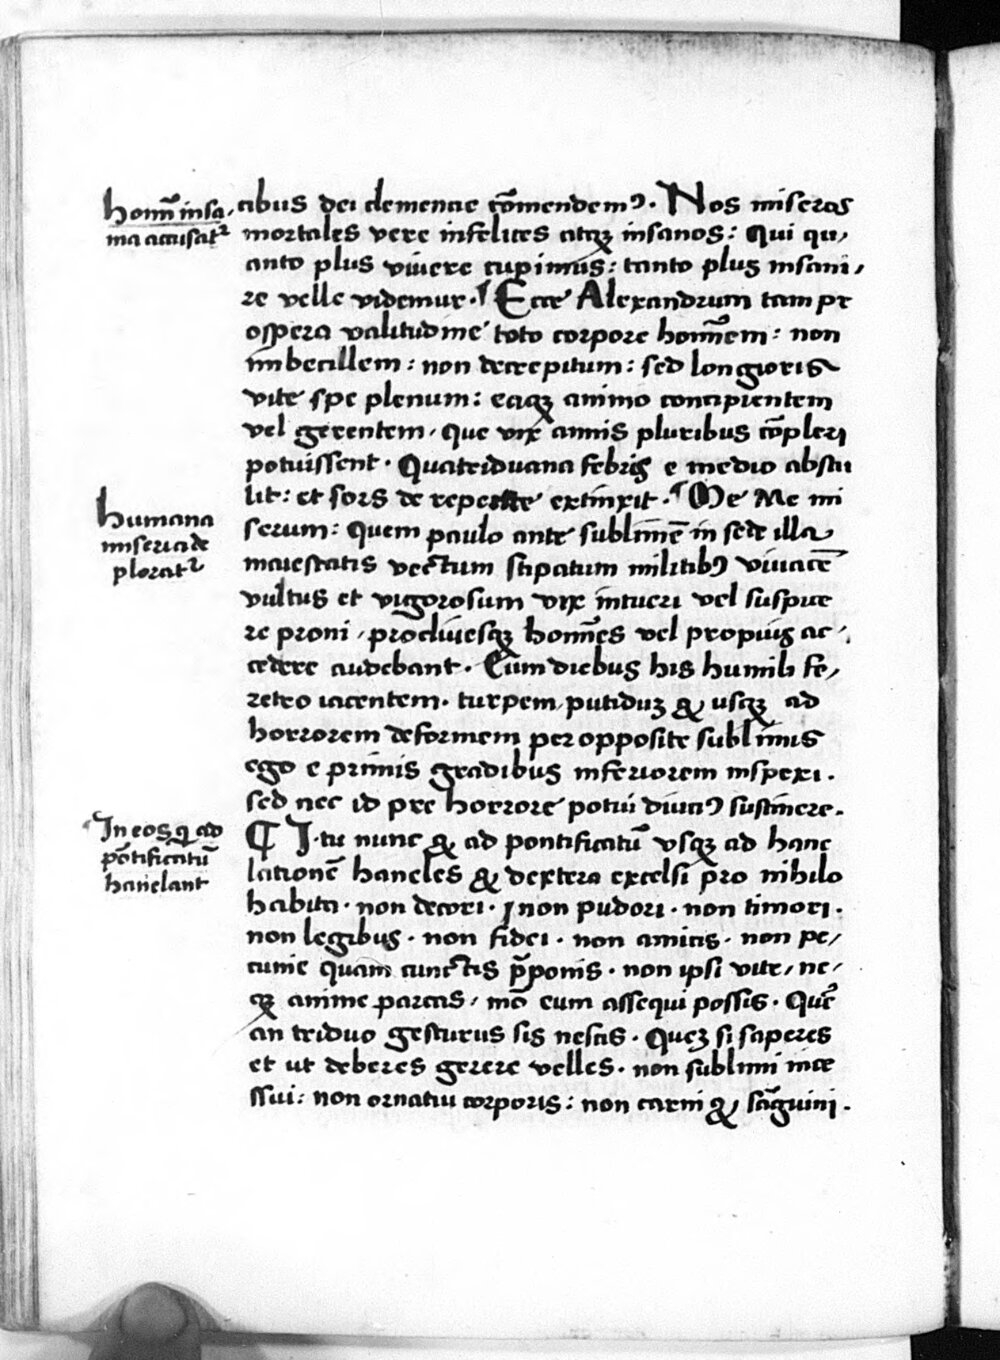 homī̄ insa-
nia accusat᷑
cibus dei clemencie cōmendemꝰ. Nos miseros
mortales vere infelices atqꝫ insanos: Qui qu-
anto plus viuere cupimus: tanto plus insani-
re velle videmur. ¶ Ecce Alexandrum tam pr
ospera valitudine toto corpore hominem: non
imbecillem: non decrepitum: sed longioris
vite spe plenum: eaqꝫ animo concipientem
vel gerentem, que vix annis pluribus cōpleri
potuissent. Quatriduana febris e medio abstu
lit: et sors de repente extinxit. ¶ Me Me mi
humana
miseria de
plorat᷑
serum: Quem paulo ante sublimē in sede illa
maiestatis vectum stipatum militibꝰ viuacē
vultus et vigorosum vix intueri vel suspice
re proni, procliuesqꝫ homines vel propius ac-
cedere audebant. Cum diebus his humili fe-
retro iacentem. turpem, putiduꝫ & usqꝫ ad
horrorem deformem per opposite sublimis
ego e primis gradibus inferiorem inspexi.
sed nec id pre horrore potui diutiꝰ sustinere.
In eos q̄ ad
pōtificatū
hanelant
¶ I. tu nunc & ad pontificatū vsqꝫ ad hanc
lationē haneles & dextera excelsi pro nihilo
habita. non decori. non pudori. non timori.
non legibus. non fidei. non amicis. non pe-
cunie quam cunctis p̄ponis. non ipsi vite, ne-
qꝫ anime parcas, mō eum assequi possis. Quē
an triduo gesturus sis nescis. Queꝫ si saperes
et ut deberes gerere velles. non sublimi ince
ssui: non ornatui corporis: non carni & sāguini.